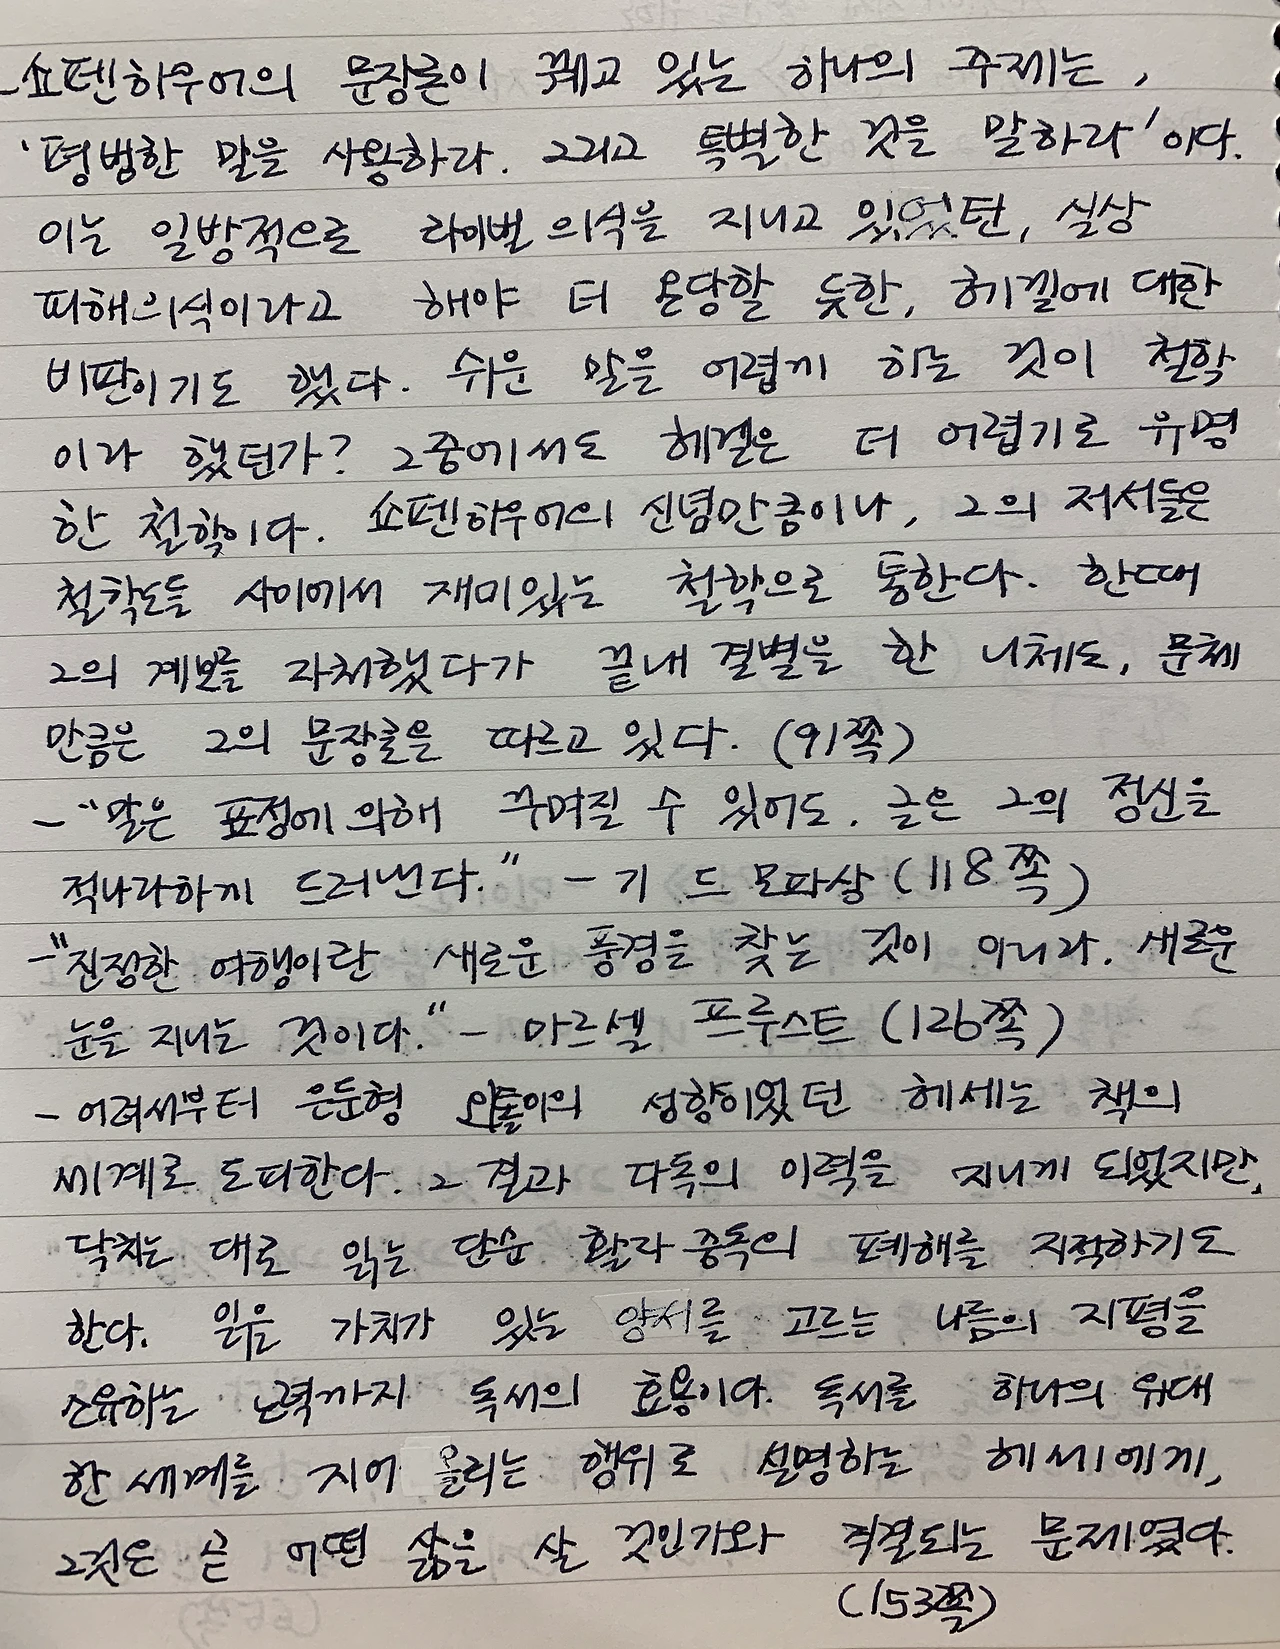 - 쇼펜하우어의 문장론이 꿰고 있는 하나의 주제는,
'평범한 말을 사용하라. 그리고 특별한 것을 말하라'이다.
이는 일방적으로 라이벌 의식을 지니고 있었던, 실상
피해의식이라고 해야 더 온당할 듯한, 헤겔에 대한
비판이기도 했다. 쉬운 말을 어렵게 하는 것이 철학
이라 했던가? 그중에서도 헤겔은 더 어렵기로 유명
한 철학이다. 쇼펜하우어의 신념만큼이나, 그의 저서들은
철학도들 사이에서 재미있는 철학으로 통한다. 한때
그의 계보를 자처했다가 끝내 결별을 한 니체도, 문체
만큼은 그의 문장론을 따르고 있다. (91쪽)
- "말은 표정에 의해 꾸며질 수 있어도, 글은 그의 정신을
적나라하게 드러낸다." - 기 드 모파상 (118쪽)
- "진정한 여행이란 새로운 풍경을 찾는 것이 아니라, 새로운
눈을 지니는 것이다." - 마르셀 프루스트 (126쪽)
- 어려서부터 은둔형 외톨이의 성향이었던 헤세는 책의
세계로 도피한다. 그 결과 다독의 이력을 지니게 되었지만,
닥치는 대로 읽는 단순 활자 중독의 폐해를 지적하기도
한다. 읽을 가치가 있는 양서를 고르는 나름의 지평을
소유하는 노력까지 독서의 효용이다. 독서를 하나의 위대
한 세계를 지어 올리는 행위로 설명하는 헤세에게,
그것은 곧 어떤 삶을 살 것인가와 직결되는 문제였다.
(153쪽)